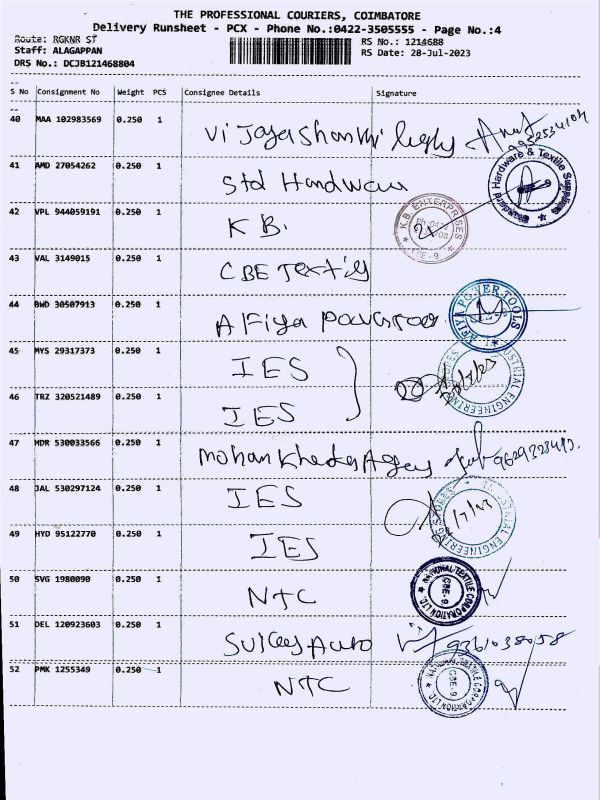 THE PROFESSIONAL COURIERS, COIMBATORE
Delivery Runsheet - PCX - Phone No.:0422-3505555 - Page No.:4
Route: RGKNR ST RS No.: 1214688
Staff: ALAGAPPAN RS Date: 28-Jul-2023
DRS No.: DCJB121468804
S No Consignment No Weight PCS Consignee Details Signature
40 MAA 102983569 0.250 1 Vijayashanthi
41 AMD 27054262 0.250 1 Std Hardware Standard Hardware & Textile Suppliers
42 VPL 944059191 0.250 1 K B. K.B. ENTERPRISES CBE-9
43 VAL 3149015 0.250 1 CBE Textiles
44 BWD 30507913 0.250 1 Alfiya Powertool ALFIYA POWER TOOLS
45 MYS 29317373 0.250 1 IES
46 TRZ 320521489 0.250 1 IES INDUSTRIAL ENGINEERING
47 MDR 530033566 0.250 1 Mohan Khadar Agency
48 JAL 530297124 0.250 1 IES INDUSTRIAL ENGINEERING STORES
49 HYD 95122770 0.250 1 IES
50 SVG 1980090 0.250 1 NTC NATIONAL TEXTILE CORPORATION LTD. CBE-9
51 DEL 120923603 0.250 1 Auto 9361038058
52 PMK 1255349 0.250 1 NTC NATIONAL TEXTILE CORPORATION LTD. CBE-9